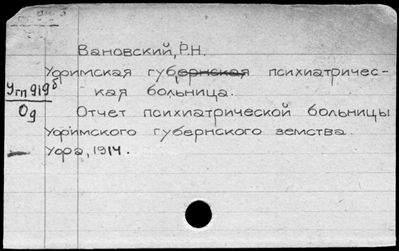 Вановский, Р.Н.
Уфимская губернская психиатричес-
кая больница.
Угп919б
Од
Отчет психиатрической больницы
Уфимского губернского земства.
Уфа, 1914.